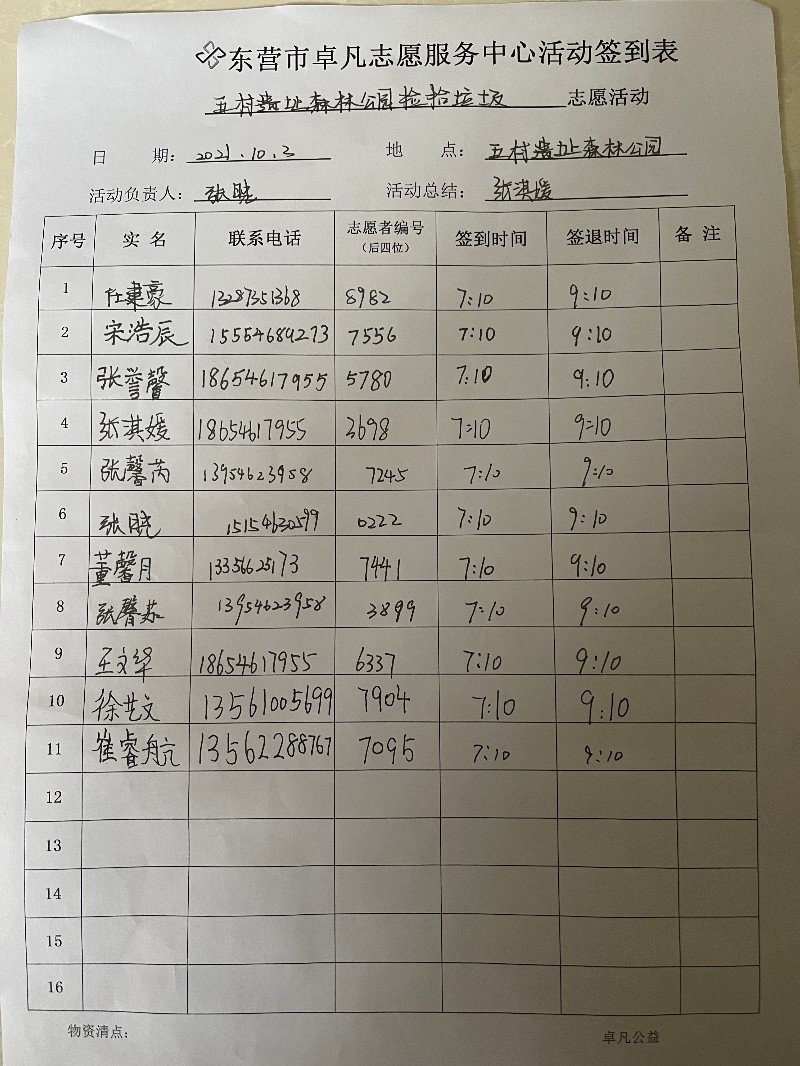 东营市卓凡志愿服务中心活动签到表
五村遗址森林公园捡拾垃圾 志愿活动
日 期: 2021.10.3 地 点: 五村遗址森林公园
活动负责人: 张晓 活动总结: 张淇媛
序号 实 名 联系电话 志愿者编号 (后四位) 签到时间 签退时间 备 注
1 任建豪 13287351368 8982 7:10 9:10
2 宋浩辰 15554689273 7556 7:10 9:10
3 张誉馨 18654617955 5780 7:10 9:10
4 张淇媛 18654617955 3698 7:10 9:10
5 张馨芮 13954623958 7245 7:10 9:10
6 张晓 15154630599 0222 7:10 9:10
7 董馨月 13356625173 7441 7:10 9:10
8 张馨苏 13954623958 3899 7:10 9:10
9 王文华 18654617955 6337 7:10 9:10
10 徐艺文 13561005699 7904 7:10 9:10
11 崔睿航 13562288767 7095 7:10 9:10
12
13
14
15
16
物资清点: 卓凡公益